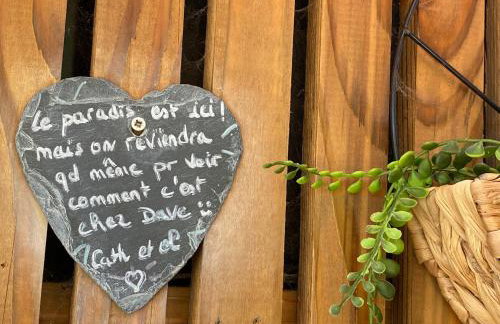 Le paradis est ici !
mais on reviendra
qd même pr voir
comment c'est
chez Dave
Cath et